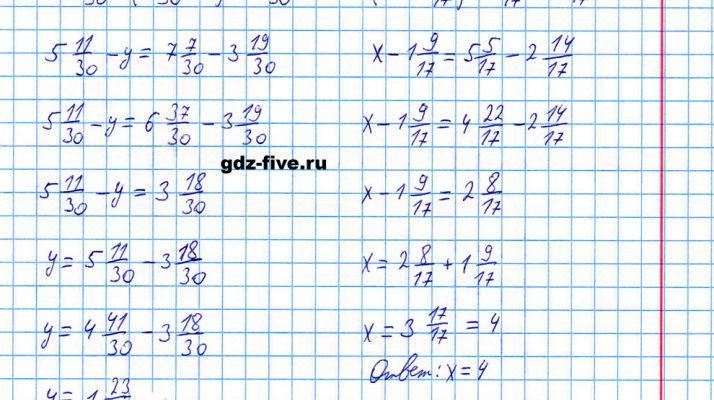 5 11/30 − y = 7 7/30 − 3 19/30
5 11/30 − y = 6 37/30 − 3 19/30
gdz-five.ru
5 11/30 − y = 3 18/30
y = 5 11/30 − 3 18/30
y = 4 41/30 − 3 18/30
y = 1 23
x − 1 9/17 = 5 5/17 − 2 14/17
x − 1 9/17 = 4 22/17 − 2 14/17
x − 1 9/17 = 2 8/17
x = 2 8/17 + 1 9/17
x = 3 17/17 = 4
Ответ: x = 4